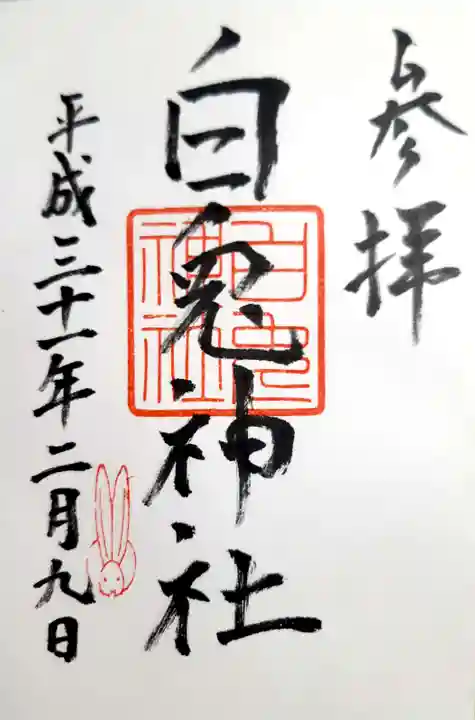 參拝
白兎神社
白兎神社
平成三十一年二月九日